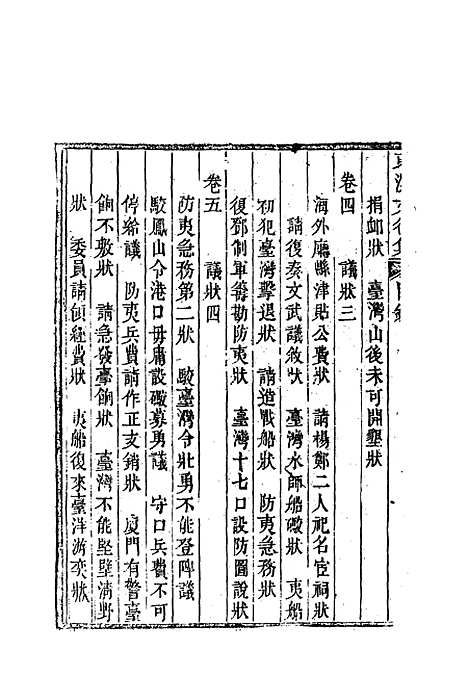 東溟文後集 目錄
捐卹狀 臺灣山後未可開墾狀
卷四 議狀三
海外廳縣津貼公費狀 請楊鄭二人祀名宦祠狀
請復奏文武議敘狀 臺灣水師船礮狀 夷船
初犯臺灣擊退狀 請造戰船狀 防夷急務狀
復鄧制軍籌勘防夷狀 臺灣十七口設防圖說狀
卷五 議狀四
防夷急務第二狀 駁臺灣令壯勇不能登陴議
駁鳳山令港口毋庸設礮募勇議 守口兵費不可
停給議 防夷兵費請作正支銷狀 厦門有警臺
餉不敷狀 請急發臺餉狀 臺灣不能堅壁清野
狀 委員請領經費狀 夷船復來臺洋游奕狀